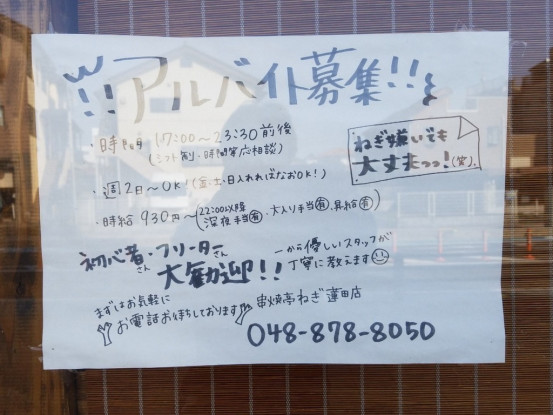 アルバイト募集!!
・時間 17:00〜23:30前後
(シフト制・時間等応相談)
ねぎ嫌いでも
大丈夫っっ!(笑)
・週2日〜OK!(金・土・日入れればなおOK!)
・時給 930円〜(22:00以降 深夜手当有、大入り手当有、昇給有)
初心者さん・フリーターさん
大歓迎!!
一から優しいスタッフが
丁寧に教えます
まずはお気軽に
お電話お待ちしております
串焼亭ねぎ 蓮田店
048-878-8050